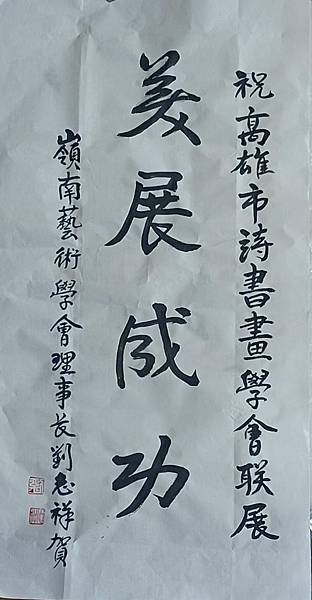 祝高雄市詩書畫學會联展
美展成功
嶺南藝術學會理事长劉志祥賀